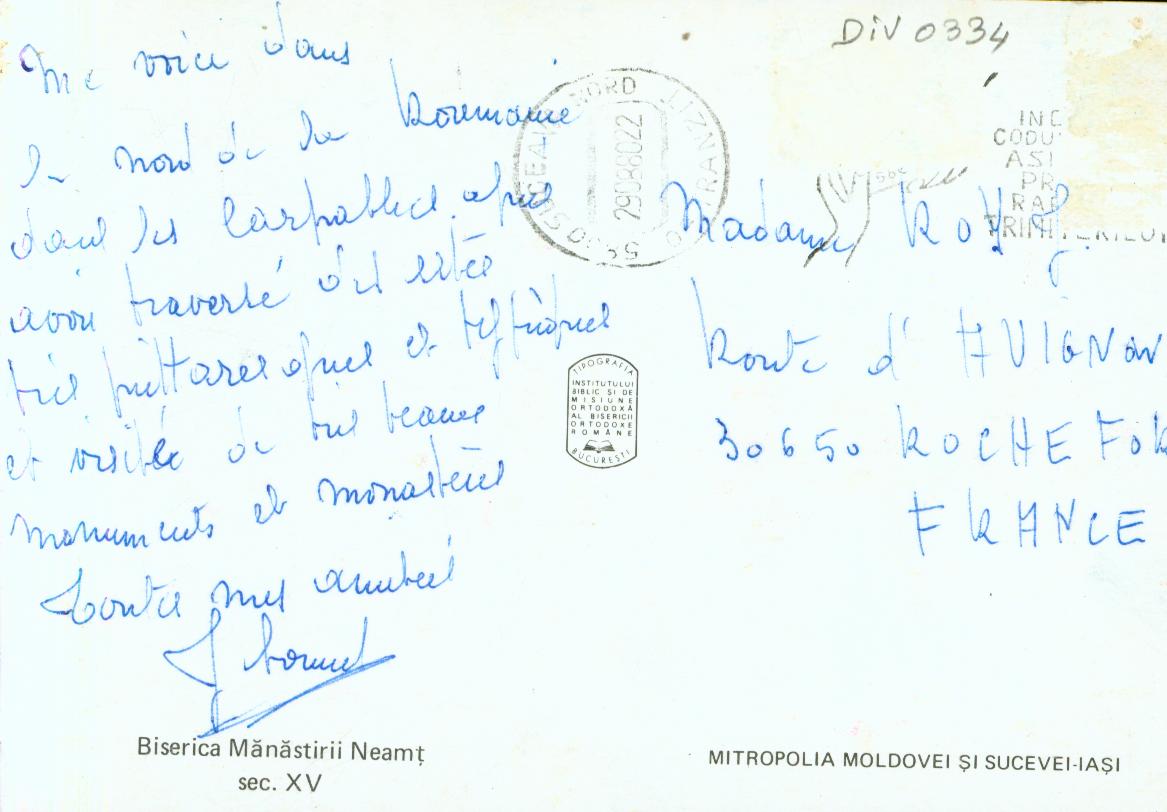 DiV 0334
Me voici dans
le nord de la Roumanie
dans les Carpathes. après
avoir traversé des sites
très pittoresques et typiques
et visité de très beaux
monuments et monastères
Toutes mes amitiés
SUCEAVA NORD
TRANZIT
29088022
5830
INC
CODU
ASI
PR
RAP
TRIMITERILOR
Madame ROUX
Route d'AVIGNON
30650 ROCHEFOR
FRANCE
TIPOGRAFIA
INSTITUTULUI
BIBLIC ŞI DE
MISIUNE
ORTODOXĂ
AL BISERICII
ORTODOXE
ROMÂNE
BUCUREŞTI
Biserica Mănăstirii Neamţ
sec. XV
MITROPOLIA MOLDOVEI ŞI SUCEVEI-IAŞI